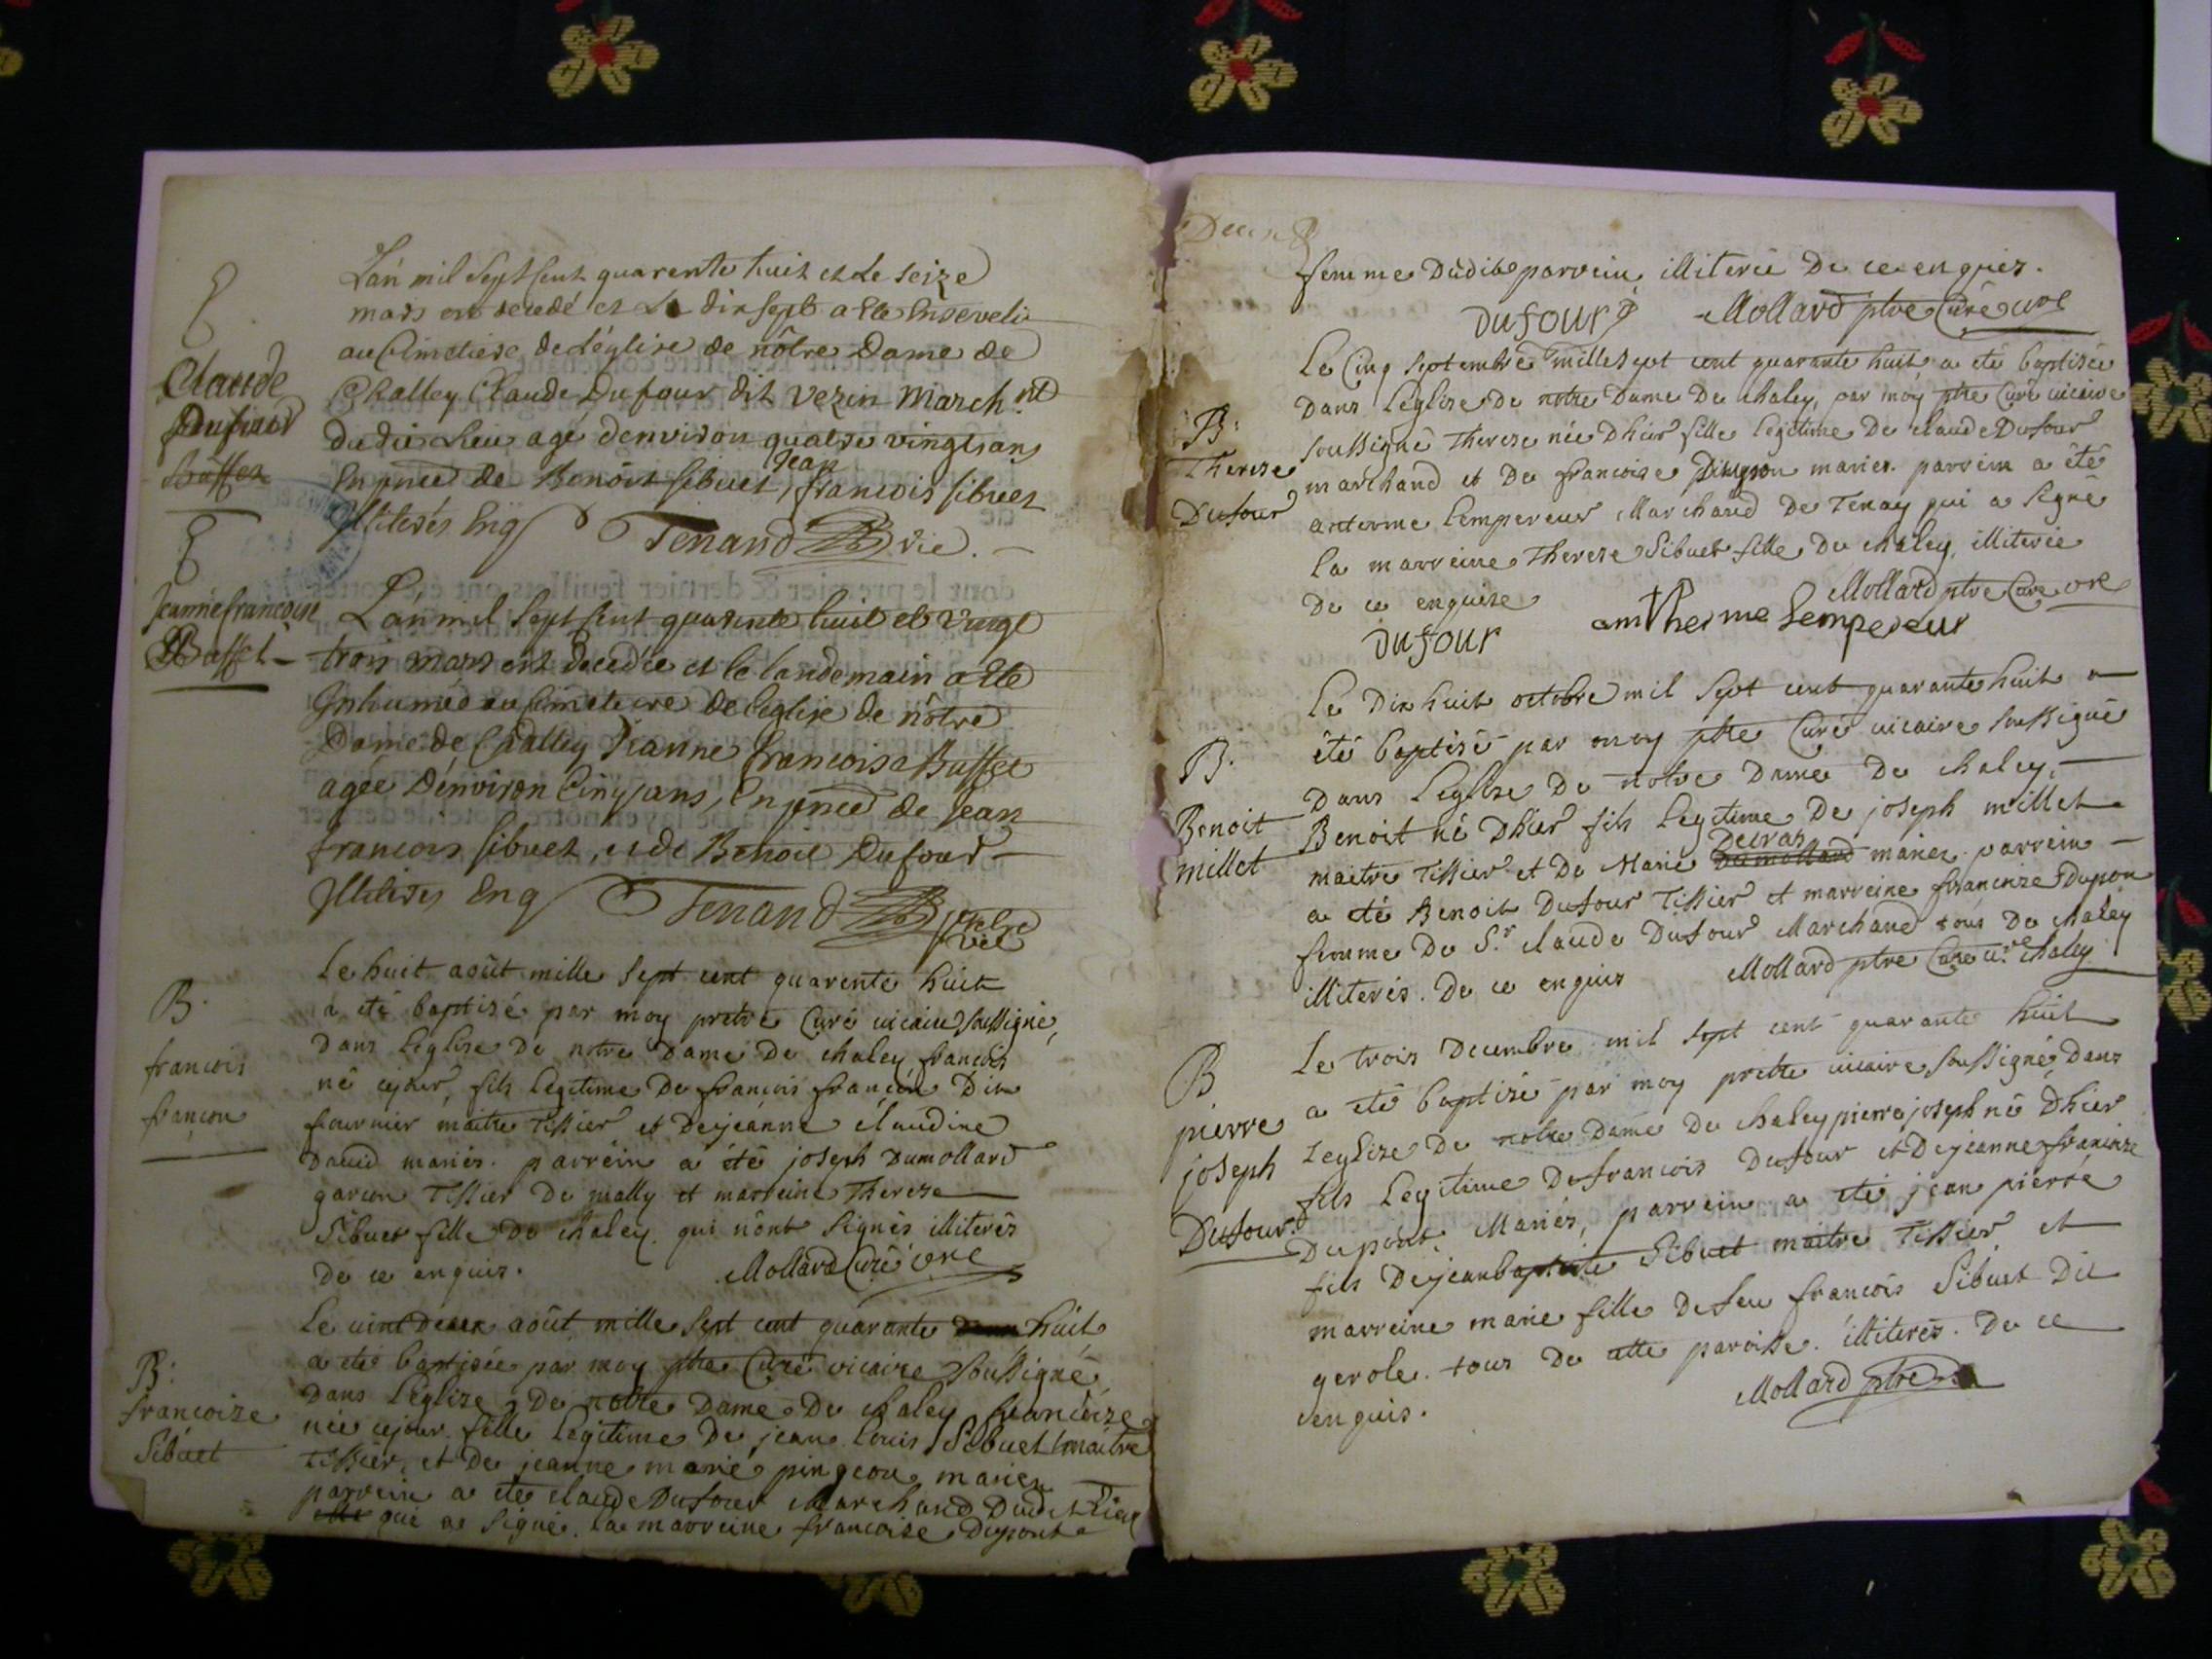 Lán mil Sept Cent quarente huit et Le seize
mars est decedé et Le dix sept a eté Enseveli
au Cimetiere de léglise de nôtre Dame de
Challey Claude Dufour dit Vezin March.nt
dudit Lieu agé d'environ quatre vingts ans
En pnce de Benoit Sibuet, Jean francois Sibuet
Illiterés Enq Tenand vic.
Claude
Dufour
Buffet
Lán mil Sept Cent quarente huit et vingt
trois mars est decedée et le landemain a eté
Inhumée au Cimetiere de leglise de nôtre
Dame de Challey Jeanne francoise Buffet
agée d'environ Cinq ans, En pnce de Jean
francois Sibuet, et de Benoit Dufour
Illiterés Enq Tenand ptre
vic
Jeanne francoise
Buffet
Le huit août mille sept cent quarente huit
a eté baptizé par moy pretre Curé vicaire soussigné,
Dans leglize De notre Dame De chaley francois
né cejour, fils legitime De francois françon Dit
fournier maitre Tissier et De jeanne claudine
David mariés. parrein a été joseph Dumollard
garcon Tissier De mally et marreine Thereze
Sibuet fille De chaley qui n'ont signés illiterés
De ce enquis. Mollard Curé vre
B.
francois
françon
Le vint deux août mille sept cent quarante huit
a eté baptisée par moy ptre Curé vicaire soussigné
Dans l'eglize De notre Dame De chaley francoize
née cejour fille legitime De jean louis Sibuet maitre
Tissier, et De jeanne marie pingeon mariez
parrein a eté claude Dufour Marchand Dudit lieu
qui a signé. la marreine francoise Dupont
B:
francoize
Sibuet
femme Dudit parrein, illiterée De ce enquis.
Dufour Mollard ptre Curé vre
Le Cinq septembre mille sept cent quarante huit a eté baptisée
Dans l'eglize De notre Dame De chaley, par moy ptre Curé vicaire
soussigné Thereze née D'hier fille legitime De claude Dufour
marchand et De francoize pingeon mariez. parrein a été
anterme Lempereur Marchand De Tenay qui a signé
la marreine Thereze Sibuet fille De chaley, illiterée
De ce enquise Mollard ptre Curé vre
Dufour antherme Lempereur
B:
Thereze
Dufour
Le Dix huit octobre mil sept cent quarante huit a
été baptisé par moy ptre Curé vicaire soussigné
Dans l'eglize De notre Dame De chaley,
Benoit né D'hier fils legitime De joseph millet
maitre Tissier et De Marie Decras mariez. parrein
a eté Benoit Dufour Tissier et marreine francoize Dupon
femme De S.r claude Dufour Marchand tous De chaley
illiterés. De ce enquis Mollard ptre Curé v.re chaley
B.
Benoit
millet
Le trois Decembre mil sept cent quarante huit
a eté baptisé par moy pretre vicaire soussigné, Dans
l'eglize De notre Dame De chaley pierre joseph né D'hier
fils legitime De francois Dufour et De jeanne francoize
Dupont Mariés, parrein a eté jean pierre
fils De jean baptiste Sibuet maitre Tissier et
marreine marie fille De feu francois Sibuet Dit
gerole. tous De cette paroisse. illiterés. De ce
enquis. Mollard ptre
B
pierre
joseph
Dufour